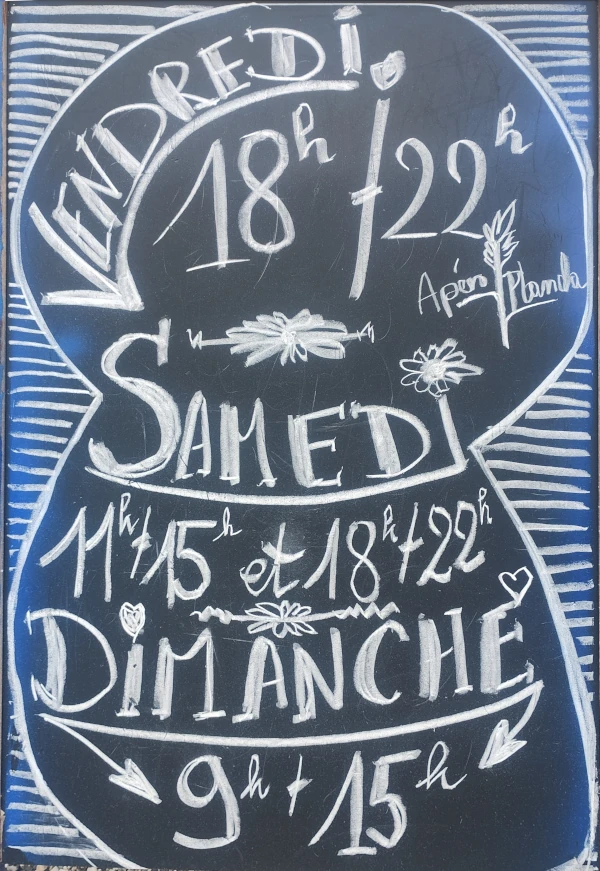 VENDREDi
18h/22h
Apéro Plancha
SAMEDi
11h/15h et 18h/22h
DiMANCHE
9h/15h